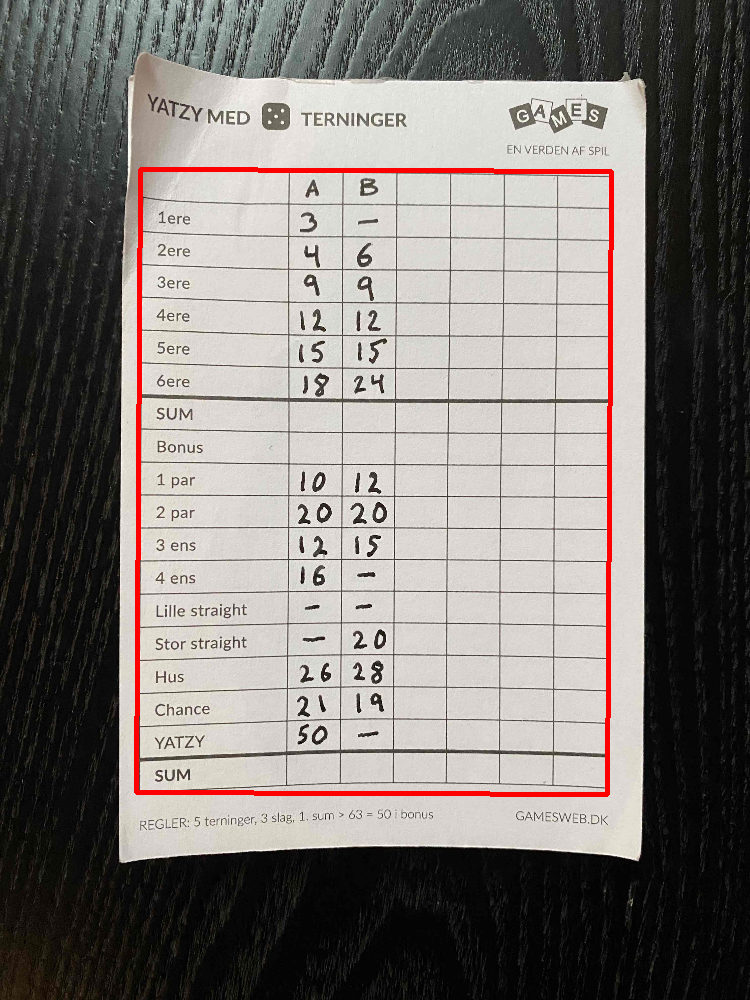 YATZY MED TERNINGER
GAMES
EN VERDEN AF SPIL
A B
1ere 3 –
2ere 4 6
3ere 9 9
4ere 12 12
5ere 15 15
6ere 18 24
SUM
Bonus
1 par 10 12
2 par 20 20
3 ens 12 15
4 ens 16 –
Lille straight – –
Stor straight – 20
Hus 26 28
Chance 21 19
YATZY 50 –
SUM
REGLER: 5 terninger, 3 slag, 1. sum > 63 = 50 i bonus
GAMESWEB.DK